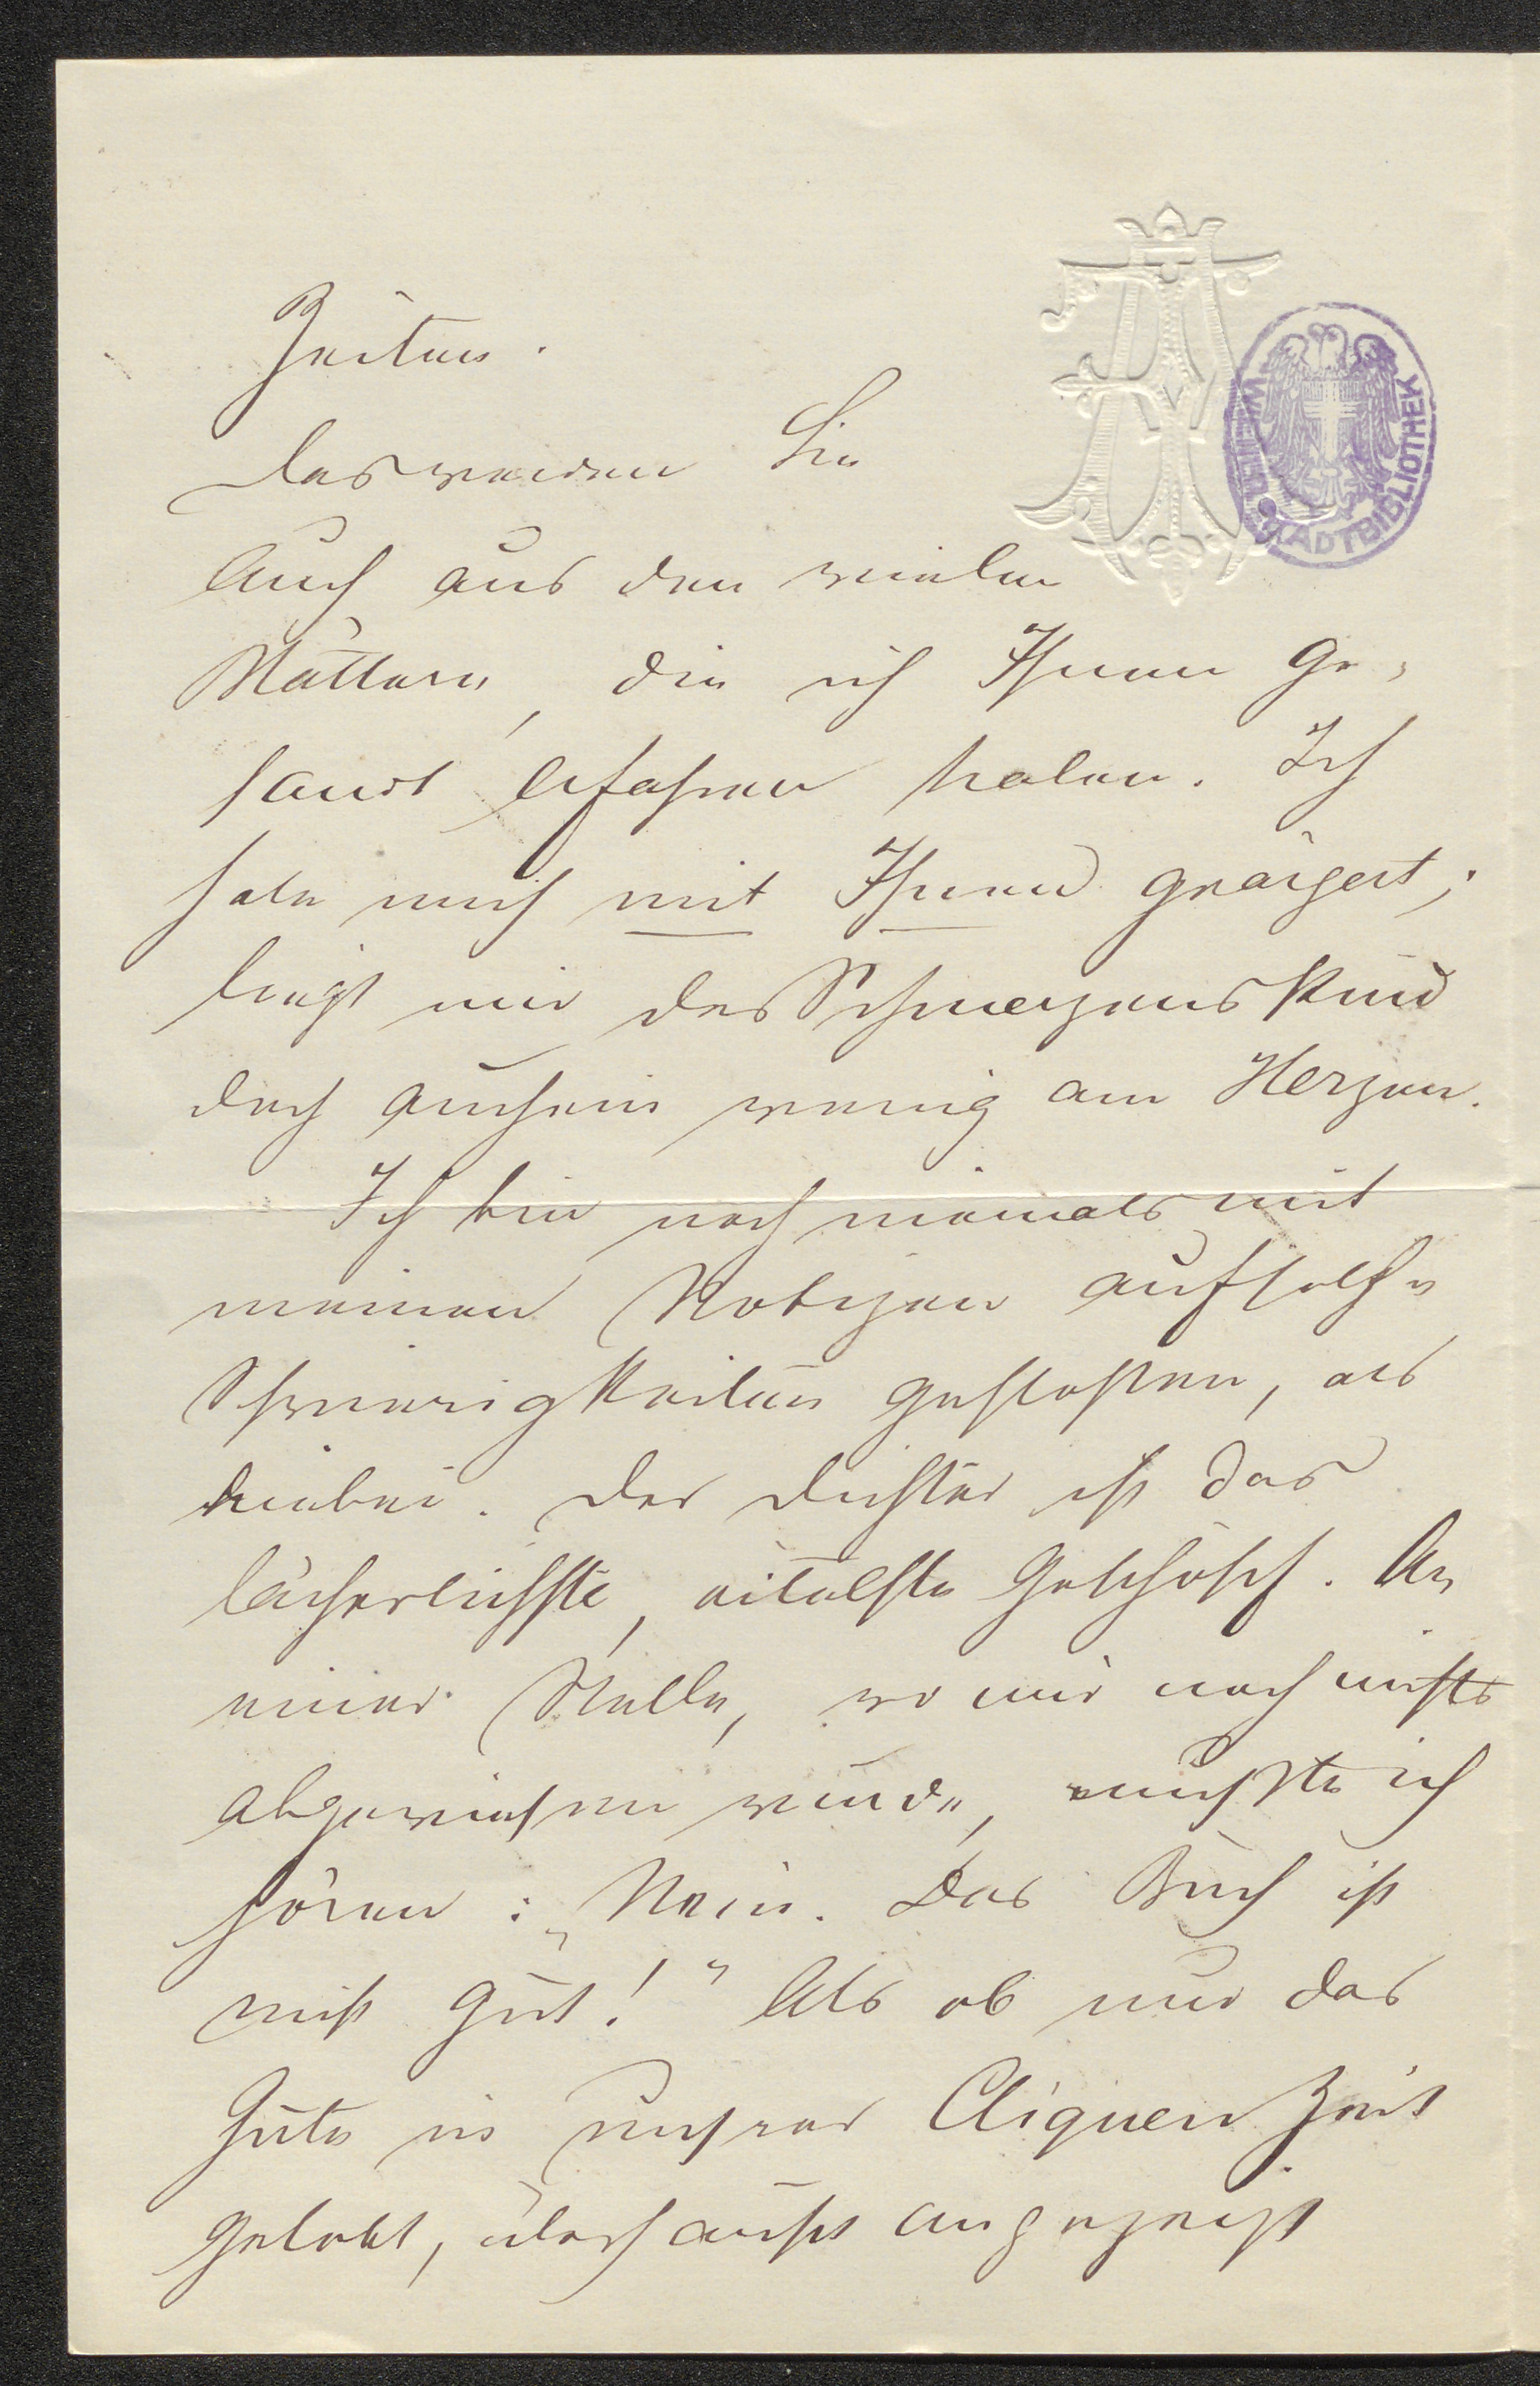 Zeiten.
Das werden Sie
Auch aus den vielen
Blättern, die ich Ihnen ge-
sandt erfahren haben. Ich
habe mich mit Ihnen geärgert;
liegt mir das Schmerzenskind
doch auch ein wenig am Herzen.
Ich bin noch niemals mit
meinen Notizen auf solche
Schwierigkeiten gestoßen, als
hiebei. Der Dichter ist das
lächerlichste, eitelste Geschöpf. An
einer Stelle, wo mir noch nichts
abgewiesen wurde, mußte ich
hören: „Nein. Das Buch ist
nicht gut!" Als ob nur das
Gute in unsrer Cliquenzeit
gelobt, überhaupt angezeigt
WIENER STADTBIBLIOTHEK